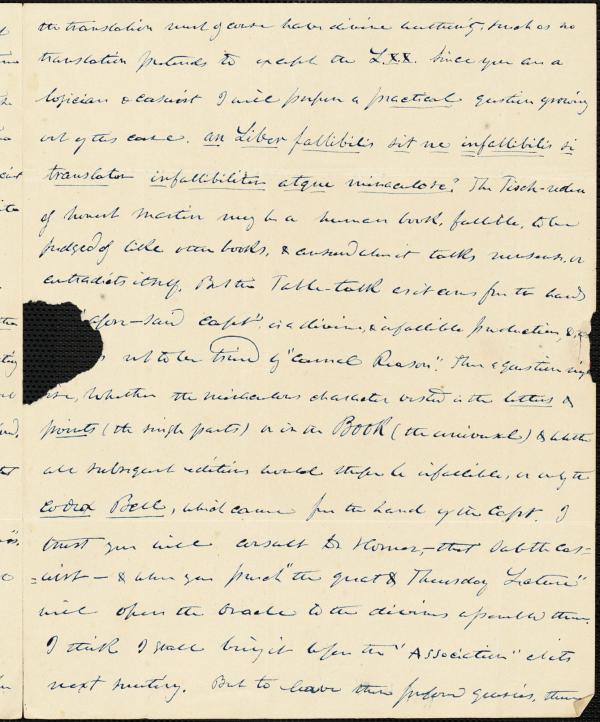 the translation must of course have divine authority, such as no
translation pretends to except the LXX. Since you are a
logician & casuist I will propose a practical question growing
out of this case. an Liber fallibilis sit ne infallibilis si
translator infallibiliter atque miraculose? The Tisch-reden
of honest Martin may be a human book, fallible, to be
judged of like other books, & censured when it talks nonsense, or
contradicts itself. But the Table-talk as it came from the hands
afore-said Capt. is a divine, & infallible production, &
not to be tried by "carnal Reason". Then a question
, Whether the miraculous character vested in the letters &
points (the single parts) or in the Book (the universal) & whether
all subsequent editions would thus be infallible, or only the
codex Bell, which came from the hand of the Capt. I
trust you will consult Dr Homer, that Sabbath
- & when you preach "the great & Thursday Lecture"
will open the Oracle to the divines assembled there.
I think I shall bring it before the "Association" at its
next meeting. But to leave these queries, there